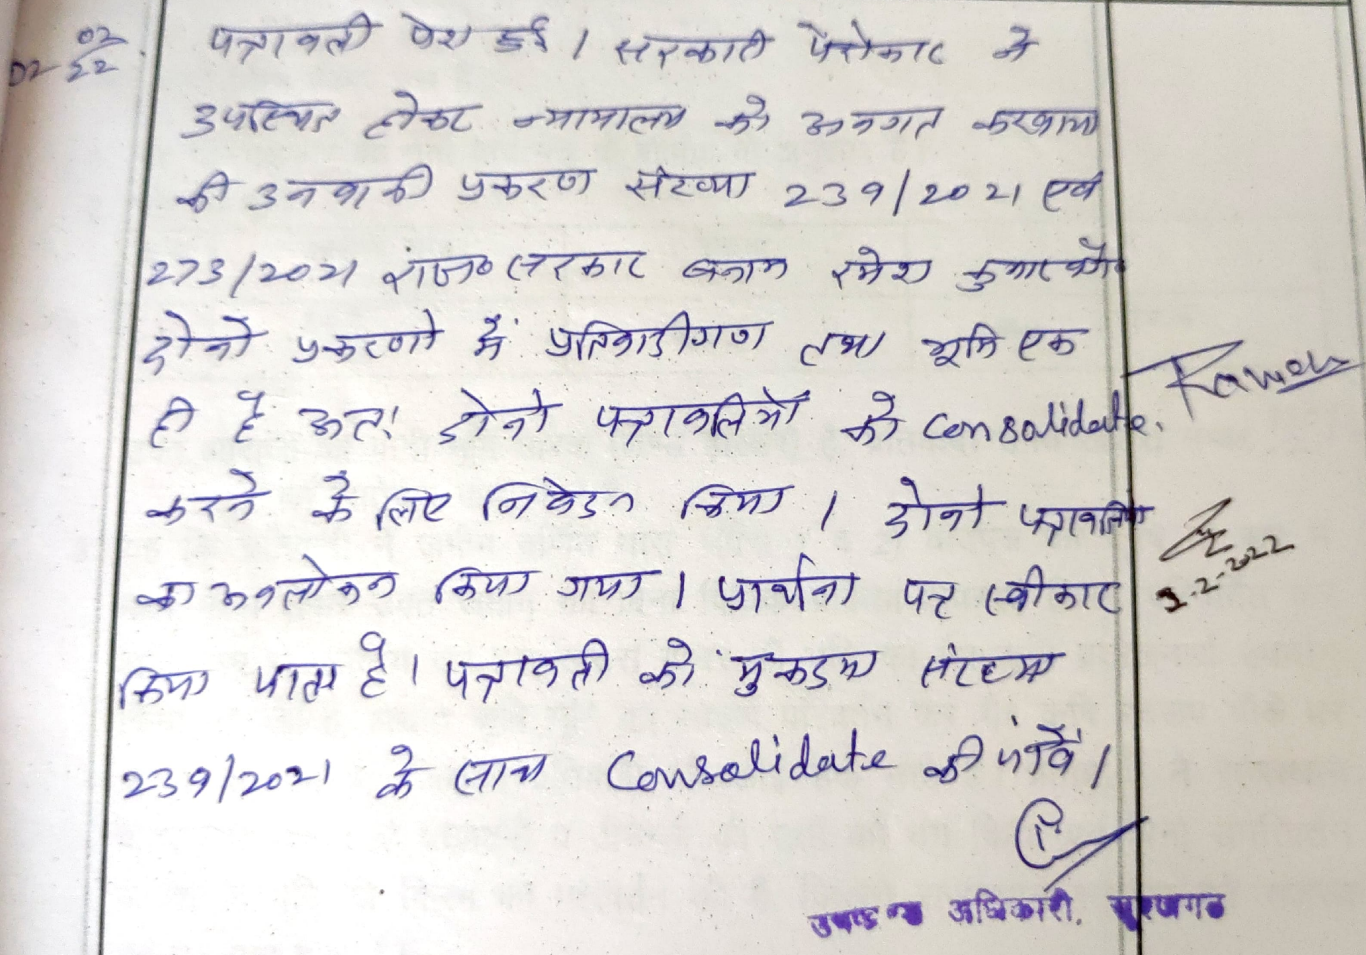 02-02-22
पत्रावली पेश हुई। सरकारी पैरोकार ने
उपस्थित होकर न्यायालय को अवगत करवाया
की उनवानी प्रकरण संख्या 239/2021 एवं
273/2021 राज० सरकार बनाम रमेश कुमार वगै०
दोनो प्रकरणो में प्रतिवादीगण तथा भूमि एक
ही है अत: दोनो पत्रावलियों को Consolidate.
करने के लिए निवेदन किया। दोनो पत्रावलियो
का अवलोकन किया गया। प्रार्थना पत्र स्वीकार
किया जाता है। पत्रावली को मुकदमा संख्या
239/2021 के साथ Consolidate की जावें।
Ramesh
2-2-2022
उपखण्ड अधिकारी, सूरजगढ